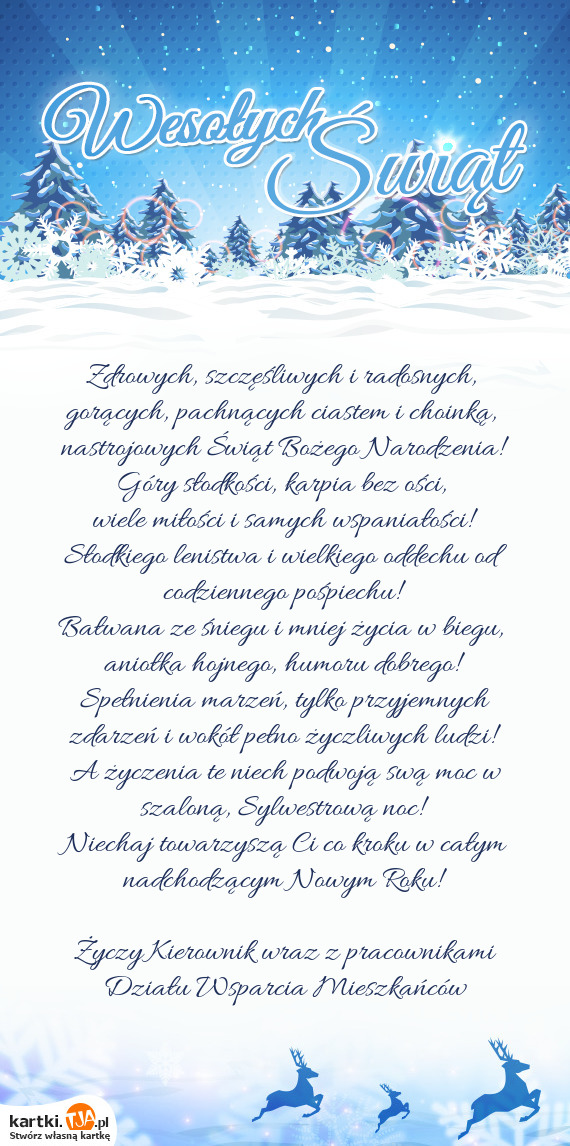 Wesołych
Świąt
Zdrowych, szczęśliwych i radosnych,
gorących, pachnących ciastem i choinką,
nastrojowych Świąt Bożego Narodzenia!
Góry słodkości, karpia bez ości,
wiele miłości i samych wspaniałości!
Słodkiego lenistwa i wielkiego oddechu od
codziennego pośpiechu!
Bałwana ze śniegu i mniej życia w biegu,
aniołka hojnego, humoru dobrego!
Spełnienia marzeń, tylko przyjemnych
zdarzeń i wokół pełno życzliwych ludzi!
A życzenia te niech podwoją swą moc w
szaloną, Sylwestrową noc!
Niechaj towarzyszą Ci co kroku w całym
nadchodzącym Nowym Roku!
Życzy Kierownik wraz z pracownikami
Działu Wsparcia Mieszkańców
kartki.TJA.pl
Stwórz własną kartkę